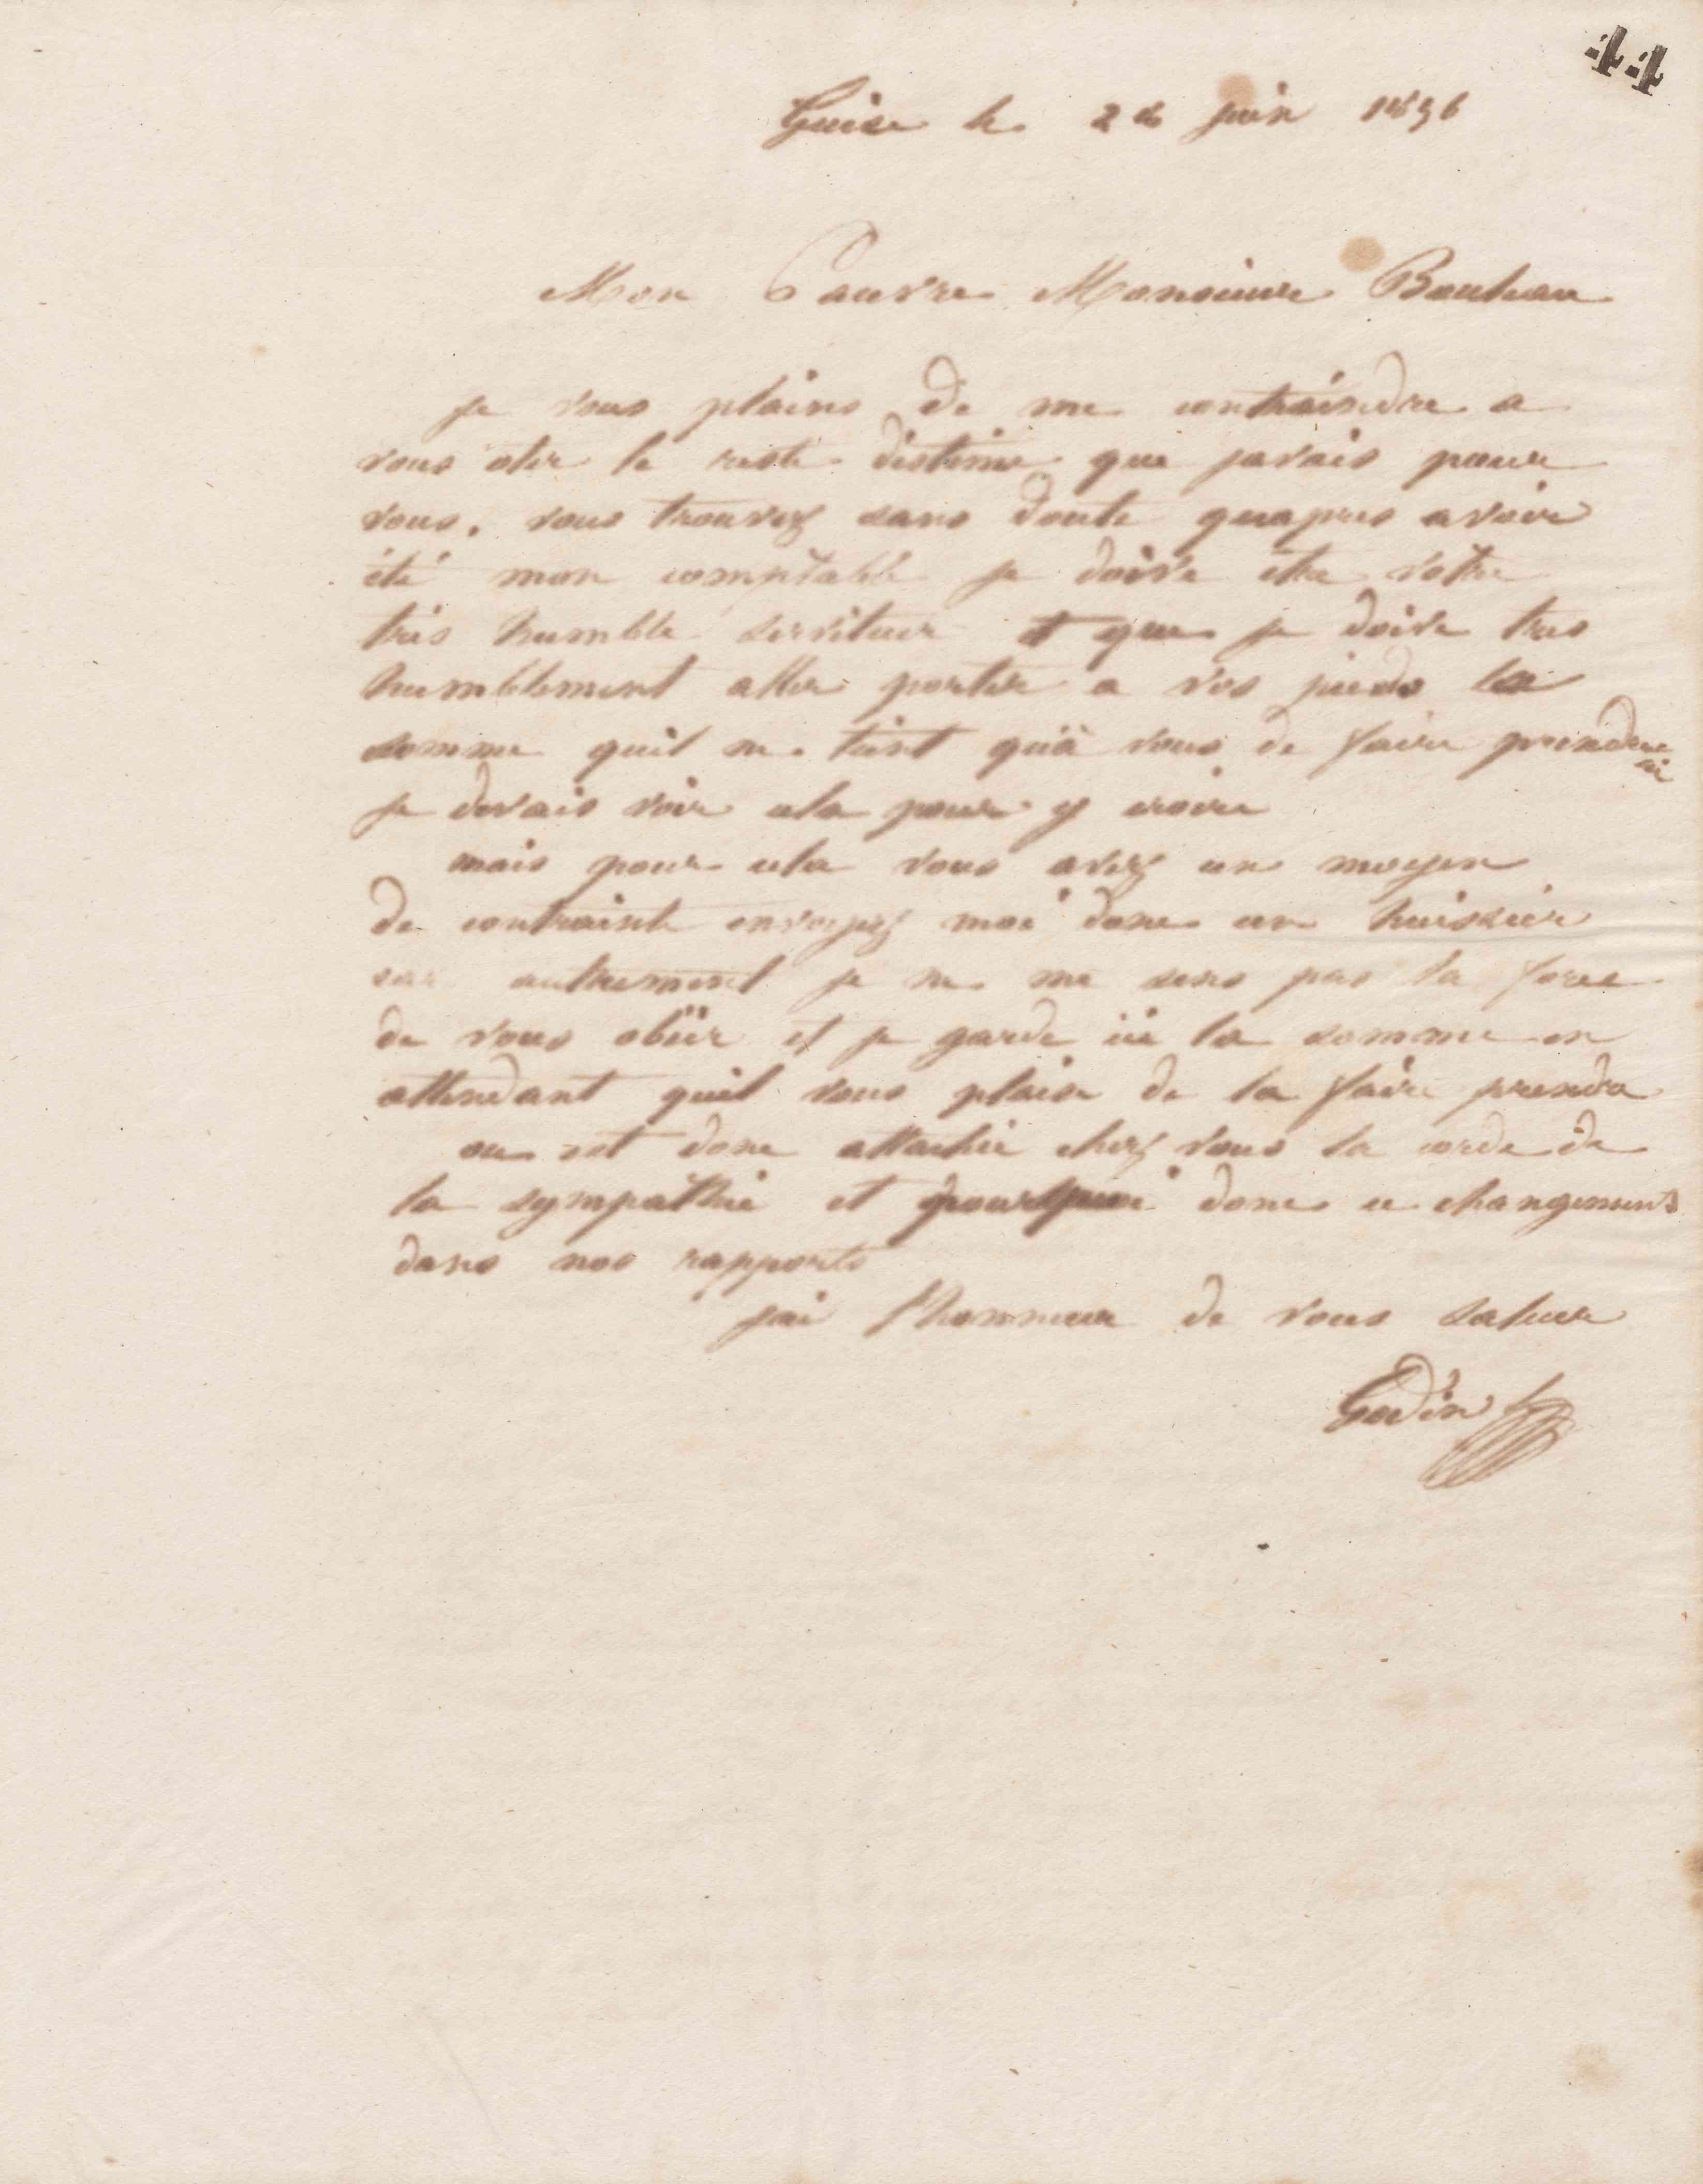 44
Guise le 26 juin 1856
Mon Pauvre Monsieur
je vous plains de me contraindre a
vous oter le reste destime que javais pour
vous. vous trouvez sans doute quapres avoir
été mon comptable je doive etre votre
très humble serviteur et que je doive tres
humblement aller porter a vos pieds la
somme quil ne tient quà vous de faire prendre
si
je devais voir cela pour y croire
mais pour cela vous avez un moyen
de contrainte envoyez moi donc un huissier
car autrement je ne me sens pas la force
de vous obéir et je garde ici la somme en
attendant quil vous plaise de la faire prendre
ou est donc attachée chez vous la corde de
la sympathie et pourquoi donc ce changement
dans nos rapports
jai l'honneur de vous saluer
Godin